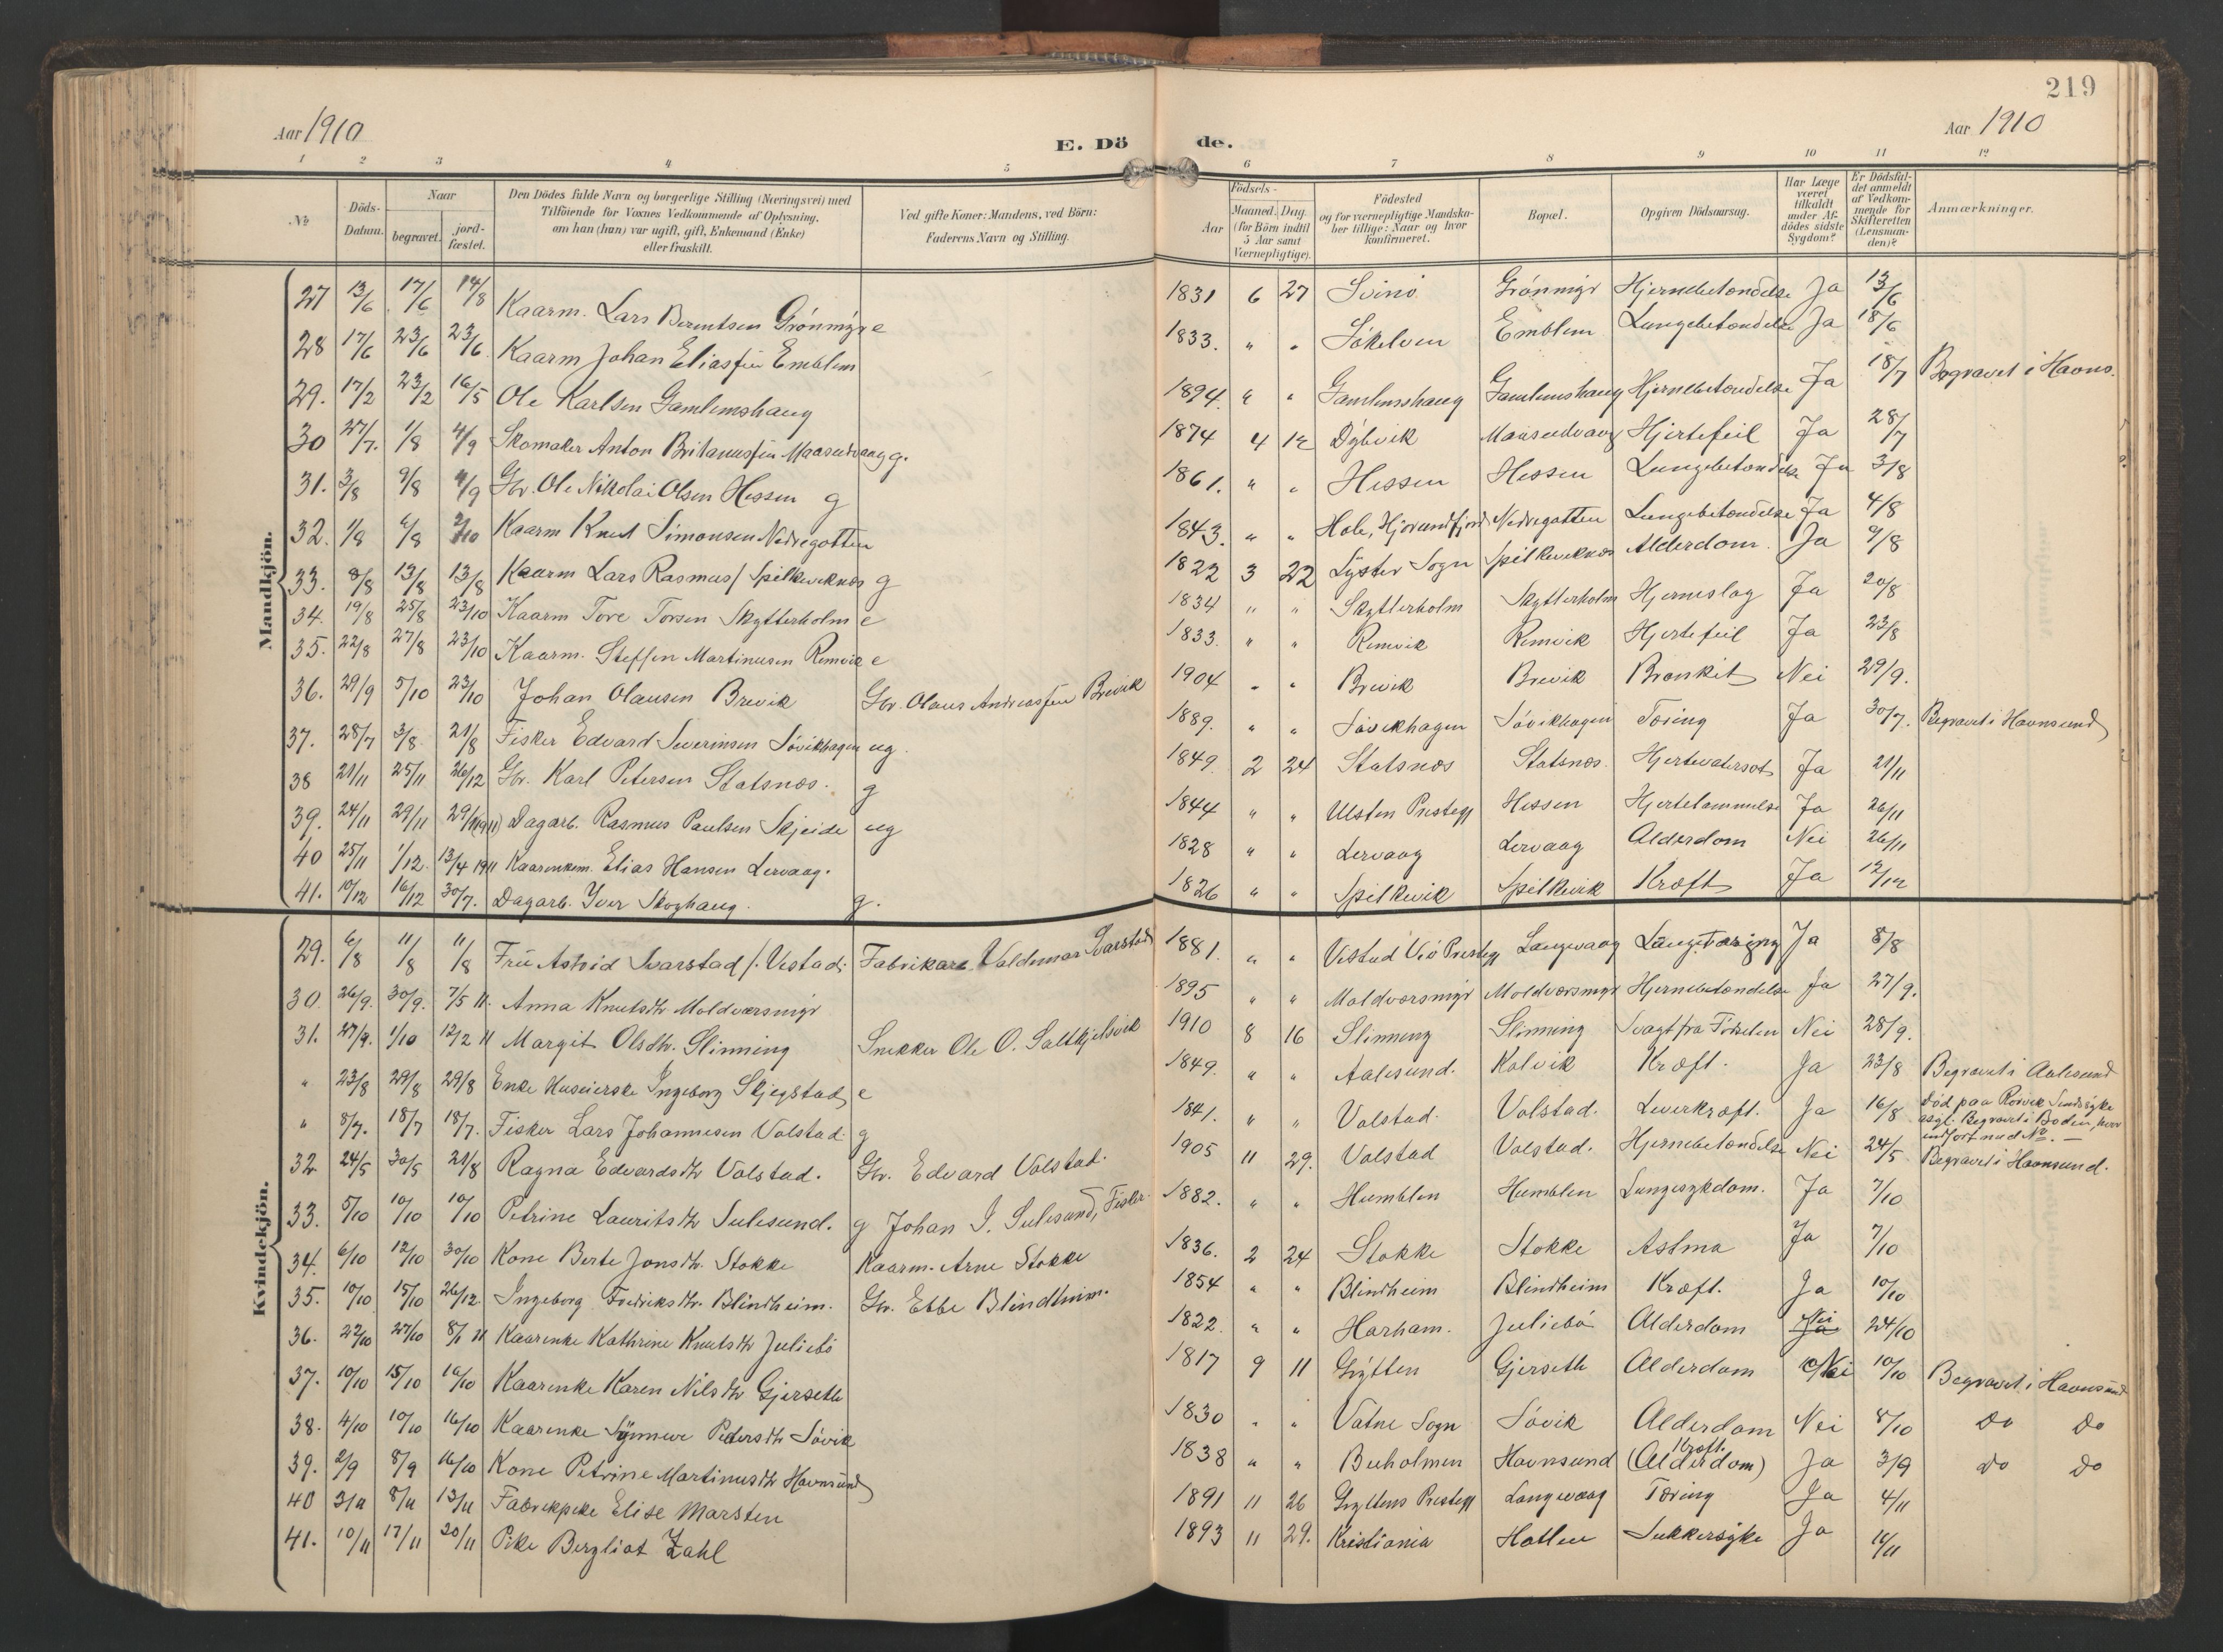 219
Aar 1910
E. Dö de.
Aar 1910
1 2 3 4 5 6 7 8 9 10 11 12
No
Döds-Datum.
Naar
begravet.
jord-fæstet.
Den Dödes fulde Navn og borgerlige Stilling (Næringsvei) med
Tilföiende for Voxnes Vedkommende af Oplysning,
om han (hun) var ugift, gift, Enkemand (Enke)
eller fraskilt.
Ved gifte Koner: Mandens, ved Börn:
Faderens Navn og Stilling.
Födsels-
Aar
Maaned. Dag.
(for Börn indtil
5 Aar samt
Værnepligtige).
Födested
og for værnepligtige Mandska-
ber tillige: Naar og hvor
konfirmeret.
Bopæl.
Opgiven Dödsaarsag.
Har Læge
været
tilkaldt
under Af-
dödes sidste
Sygdom?
Er Dödsfal-
det anmeldt
af Vedkom-
mende for
Skifteretten
(Lensman-
den)?
Anmærkninger.
Mandkjön.
27 13/6 17/6 14/8 Kaarm. Lars Berntsen Grönmyr e 1831 6 27 Svinö Grönmyr Hjernebetændelse Ja 13/6
28 17/6 23/6 23/6 Kaarm Johan Eliassen Emblem 1833. " " Sökelven Emblem Lungebetændelse Ja 18/6
29. 17/2 23/2 16/5 Ole Karlsen Gamlemshaug 1894. " " Gamlemshaug Gamlemshaug Hjernebetændelse Ja 18/7 Begravet i Havns.
30 27/7. 1/8 4/9 Skomaker Anton Maaseidvaag g. 1874 4 12 Dybvik Maaseidvaag Hjertefeil Ja 28/7
31. 3/8 9/8 4/9 Gbr. Ole Nikolai Olsen Hessen g 1861. " " Hessen Hessen Lungebetændelse Ja 3/8
32. 1/8 6/8 2/10 Kaarm Knut Simonsen Nedregotten 1843. " " Hole, Hjörundfjord Nedregotten Lungebetændelse Ja 4/8
33. 8/8 13/8 13/8 Kaarm Lars Rasmus/ Spilkeviknes g 1822 3 22 Lyster Sogn Spilkeviknes Alderdom. Ja 9/8
34. 19/8 25/8 23/10 Kaarm Tore Torsen Skytterholm e 1834 " " Skytterholm Skytterholm Hjerneslag Ja 20/8
35. 22/8 27/8 23/10 Kaarm. Steffen Martinusen Remvik e 1833. " " Remvik Remvik Hjertefeil Ja 23/8
36. 29/9 5/10 23/10 Johan Olausen Brevik Gbr. Olaus Andreassen Brevik 1904 " " Brevik Brevik Bronkit Nei 29/9.
37. 28/7 3/8 21/8 Fisker Edvard Severinsen Sövikhagen ug. 1889. " " Sövikhagen Sövikhagen Tæring Ja 30/7. Begravet i Havnsund
38 21/11 25/11 26/12 Gbr. Karl Petersen Slatsnes. g 1849. 2 24 Slatsnes Slatsnes. Hjertevatersot Ja 21/11
39. 24/11 29/11 Dagarb. Rasmus Paulsen Skjeide ug 1844 " " Ulsten Presteg Hessen Hjertelammelse Ja 26/11
40 25/11 1/12. 13/4 1911 Kaarenkem. Elias Hansen Lervaag. 1828 " " Lervaag Lervaag Alderdom Nei 26/11
41. 10/12 16/12 30/7. Dagarb. Iver Skoghaug. g. 1826 " " Spilkevik Spilkevik Kræft Ja 12/12
Kvindekjön.
29. 6/8 11/8 11/8 Frü Astrid Svarstad f. Vestad. Fabrikare Valdemar Svarstad 1881. " " Vestad Viö Presteg Langevaag Lungetæring Ja 8/8
30. 26/9. 30/9. 7/5 11. Anna Knutsdtr Moldværsmyr 1895 " " Moldværsmyr Moldværsmyr Hjernebetændelse Ja 27/9.
31. 27/9. 1/10 12/2 11 Margit Olsdtr. Slinning Snekker Ole O. Saltkjelsvik 1910 8 16 Slinning Slinning Svagt fra Födselen Nei 28/9.
" 23/8 29/8 29/8 Enke Huseierske Ingeborg Skjegstad e 1849. " " Aalesund. Kolvik Kræft. Ja 23/8 Begravet i Aalesund
" 8/7. 18/7 18/7. Fisker Lars Johannesen Valstad. g 1841. " " Valstad. Valstad. Leverkræft. Ja 16/8 Död paa Rosvik Sindssyke
asyl. Begravet i Bodin, hvor
indfört med No. —
32 24/5 30/5 21/8 Ragna Edvardsdtr Valstad. Gbr. Edvard Valstad. 1905 11 29. Valstad Valstad. Hjernebetændelse Nei 24/5 Begravet i Havnsund.
33. 5/10 10/10 10/10 Petrine Lauritsdtr Sulesund. g Johan J. Sulesund, Fisker. 1882. " " Humblen Humblen Lungesykdom. Ja 7/10
34. 6/10 12/10 30/10 Kone Berte Jonsdtr. Stokke Kaarm. Arne Stokke 1836. 2 24 Stokke Stokke Astma Ja 7/10
35. 10/10 15/10 26/12. Ingeborg Fredriksdtr. Blindheim. Gbr. Ebbe Blindheim. 1854 " " Blindheim Blindheim Kræft. Ja 10/10
36. 22/10 27/10 8/1 11 Kaarenke Kathrine Knutsdtr Juliebö 1822. " " Harham. Juliebö Alderdom Nei Ja 24/10
37. 10/10 15/10 16/10 Kaarenke Karen Nilsdtr Gjerseth 1817 9 11 Grytten Gjerseth Alderdom Nei 10/10 Begravet i Havnsund
38. 4/10 10/10 16/10 Kaarenke Synneve Pedersdtr Sövik 1830 " " Vatne Sogn Sövik Alderdom Nei 8/10 Do Do
39. 2/9 8/9 16/10 Kone Petrine Martinusdtr Havnsund 1838 " " Buholmen Havnsund Kræft. (Alderdom) Ja 3/9 Do Do
40 3/11 8/11 13/11 Fabrikpike Elise Marsten 1891 11 26 Gryttens Presteg Langevaag Tæring Ja 4/11
41. 10/11 17/11 20/11 Pike Bergliot Zahl 1893 11 29. Kristiania Hatlen Sukkersyke Ja 11/11